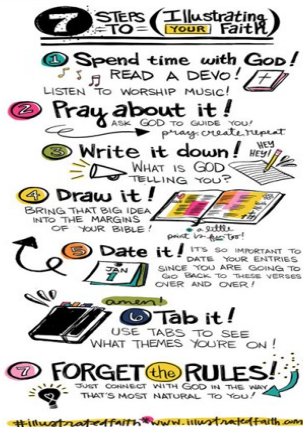 7 STEPS =TO= (Illustrating YOUR Faith)
1 Spend time with GOD!
READ A DEVO!
LISTEN TO WORSHIP MUSIC!
2 Pray about it!
ASK GOD TO GUIDE YOU!
pray. create. repeat
3 Write it down!
HEY HEY!
WHAT IS GOD
TELLING YOU?
4 Draw it!
BRING THAT BIG IDEA
INTO THE MARGINS
OF YOUR BIBLE!
a little
paint is fun too!
5 Date it!
IT'S SO IMPORTANT TO
DATE YOUR ENTRIES
SINCE YOU ARE GOING TO
GO BACK TO THESE VERSES
OVER AND OVER!
JAN
1
amen!
6 Tab it!
USE TABS TO SEE
WHAT THEMES YOU'RE ON!
7 FORGET the RULES!
JUST CONNECT WITH GOD IN THE WAY
THAT'S MOST NATURAL TO YOU!
#illustratedfaith www.illustratedfaith.com